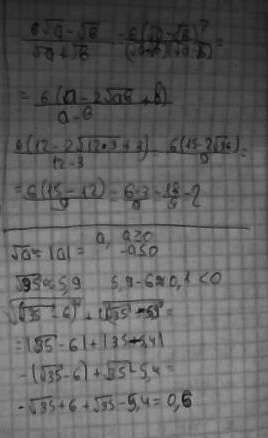 6√a - √b / √a + √b = 6(√a - √b)² / (√a+√b)(√a-√b) =
= 6(a - 2√ab + b) / a - b
6(12 - 2√12·3 + 3) / 12 - 3 = 6(15 - 2√36) / 9 =
= 6(15 - 12) / 9 = 6·3 / 9 = 18 / 9 = 2
√a² = |a| = a, a≥0
-a≤0
√35 ≈ 5,9 5,9 - 6 ≈ 0,1 < 0
√(√35 - 6)² + √(√35 - 5,4)² =
= |√35 - 6| + |√35 - 5,4|
-(√35 - 6) + √35 - 5,4 =
-√35 + 6 + √35 - 5,4 = 0,6